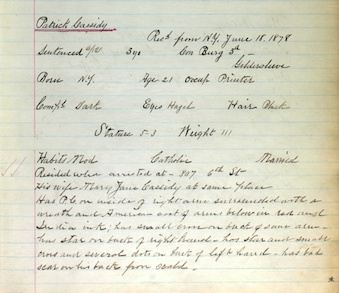 Patrick Cassidy
Rec'd from N.Y. June 18, 1878
Sentenced 3 yrs Con Burg 3rd
Gildersleeve
Born N.Y. Age 21 Occup Printer
Complx Dark Eyes Hazel Hair Black
Stature 5-3 Weight 111
Habits Mod Catholic Married
Resided when arrested at - 307 6th St
His wife Mary Jane Cassidy at same place
Has P.C. on inside of right arm surrounded with a
wreath and American coat of arms below in red and
India ink; has small cross on back of same arm -
has star on back of right hand - has star and small
cross and several dots on back of left hand - has bad
scar on his back from scald.